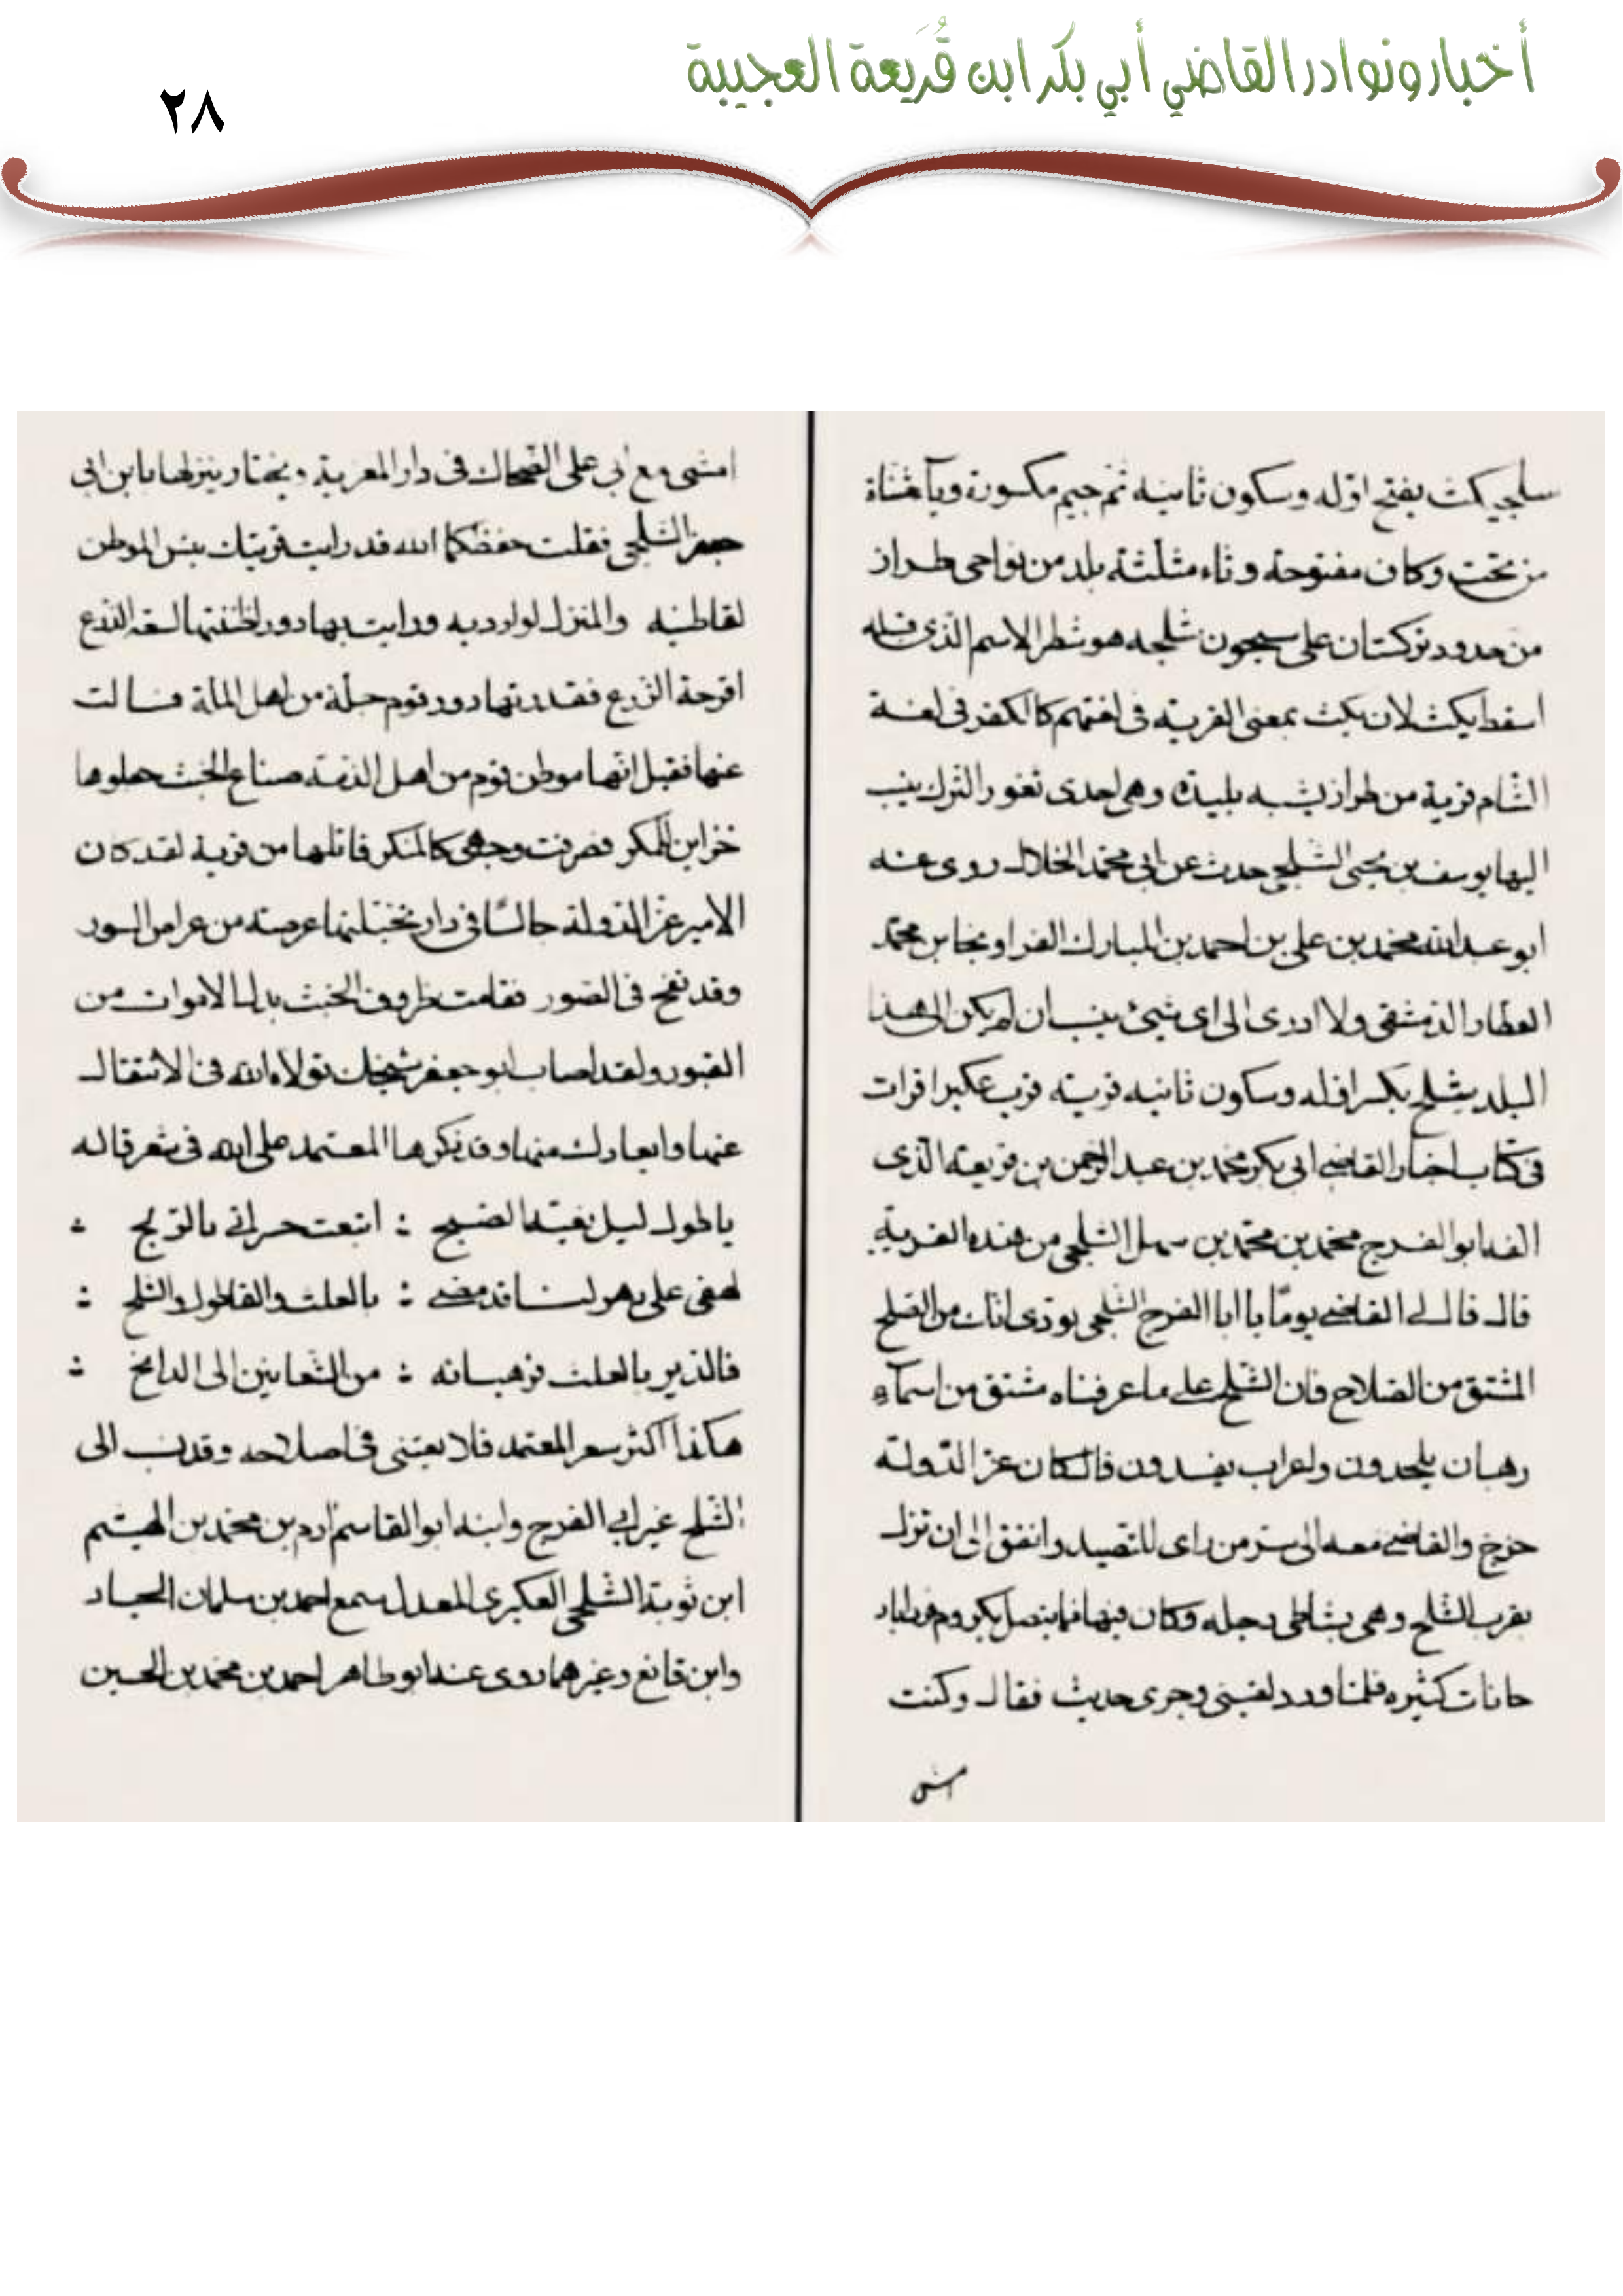 أخبار ونوادر القاضي أبي بكر ابن قُرَيعة العجيبة
٢٨
سلجيكث بفتح اوّله وسكون ثانيه ثم جيم مكسورة ويآ مثناة
من تحت وكاف مفتوحة وثاء مثلثة بلد من نواحى طراز
من حدود تركستان على سيحون شلجه هو شطر الاسم الذى قبله
اسقط يكث لان يكث بمعنى القرية فى لغتهم كالكفر فى لغة
الشام قرية من طراز يشبه بليدة وهى احدى ثغور الترك ينسب
اليها يوسف بن يحيى الشلجى حدث عن ابى محمد الخلال روى عنه
ابو عبد الله محمد بن على بن احمد بن المبارك الفرا ونجا بن محمد
العطار الدمشقى ولا ادرى الى اى شيئ ينسبان لم يكن الى هذا
البلد شلح بكسر اوله وسكون ثانيه قرية قرب عكبرا قرات
فى كتاب اخبار القاضى ابى بكر محمد بن عبد الرحمن بن قريعة الذى
الفه ابو الفرج محمد بن محمد بن سهل الشلجى من هذه القرية
قال قال لى القاضى يوما يا ابا الفرج الشلجى يؤدى انك من الصلح
المشتق من الصلاح فان الشلح على ما عرفناه مشتق من اسمآء
رهبان يلحدون واعراب يفسدون قال كان عز الدولة
خرج والقاضى معه الى سر من راى للتصيد واتفق الى ان نزل
بقرب الشلح وهى بشاطى دجله وكان فيها مما يتصل بكروم
حانات كثيره فلما ورد لقينى وجرى حديث فقال وكنت
امشى
امشى مع ابى على الضحاك فى دار المعزية ويختار ينزلها يا بن ابى
الشلجى فقلت حفظكما الله قد رايت قريتك بئس الموطن
لقاطنيه والمنزل لوارديه ورايت بها دور لظننتها لسعة الذرع
اقرحة الزرع فقدرتها دور قوم جلة من اهل الملة فسالت
عنها فقيل انها موطن قوم من اهل الذمة صناع الخبث جعلوها
خزاين المكر فصرفت وجهى كالمنكر قاتلها من قرية لقد كان
الامير عز الدولة جالسا فى دار نخيلتها عرصة من عراص السور
وقد نفخ فى الصور فقامت ظروف الخبث بدل الاموات من
القبور ولقد اصاب ابو جعفر شيخك تولاه الله فى الانتقال
عنها وابعادك منها وقد ذكرها المعتمد على الله فى شعر قاله
يا طول ليل بغية الصبح : اتبعت حرانى بالربح :
لهفى على دهر لنا قد مضى : بالعلث والقاطول والشلح :
فالدير بالعلث فرهبانه : من الشعانين الى الدابح :
هكذا اكثر شعر المعتمد فلا يعتنى فى اصلاحه وقد نسب الى
الشلح غير ابى الفرج وابنه ابو القاسم ادم بن محمد بن الهيثم
ابن توبة الشلجى العكبرى المعدل سمع احمد بن سلمان النجاد
وابن قانع وغيرهما روى عنه ابو طاهر احمد بن محمد بن الحسين